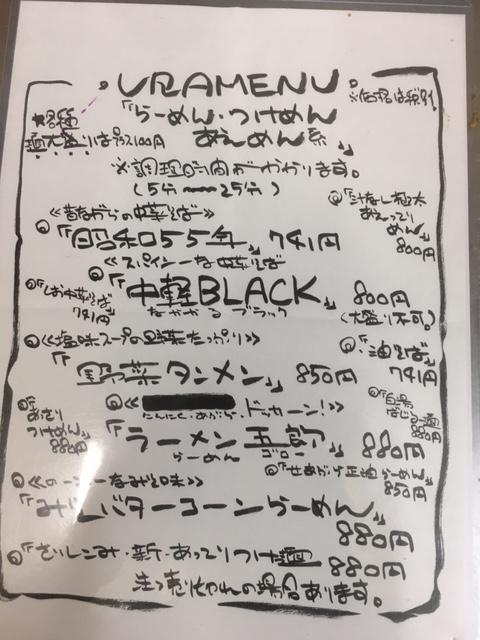 URAMENU
※価格は税別
「らーめん・つけめん
あえめん系」
★各種
麺大盛りはプラス100円
※調理時間がかかります。
(5分〜25分)
「汁なし極太
めん」
800円
≪昔ながらの中華そば≫
「昭和55年」 741円
≪スパイシーな中華そば
「しお中華そば」
741円
「中軽BLACK」 800円
なかがるブラック
(大盛り不可)
≪塩味スープの野菜たっぷり≫
・油そば
741円
「野菜タンメン」 850円
880円
「あさり
つけめん」
880円
≪ にんにく・あぶら・ドッカーン!≫
「ラーメン五郎」 880円
らーめん ゴロー
「せあぶら正油らーめん」
850円
≪のーこーなみそ味≫
「みそバターコーンらーめん」
880円
・新・あっさりつけ麺 880円
注)売り切れの場合あります。